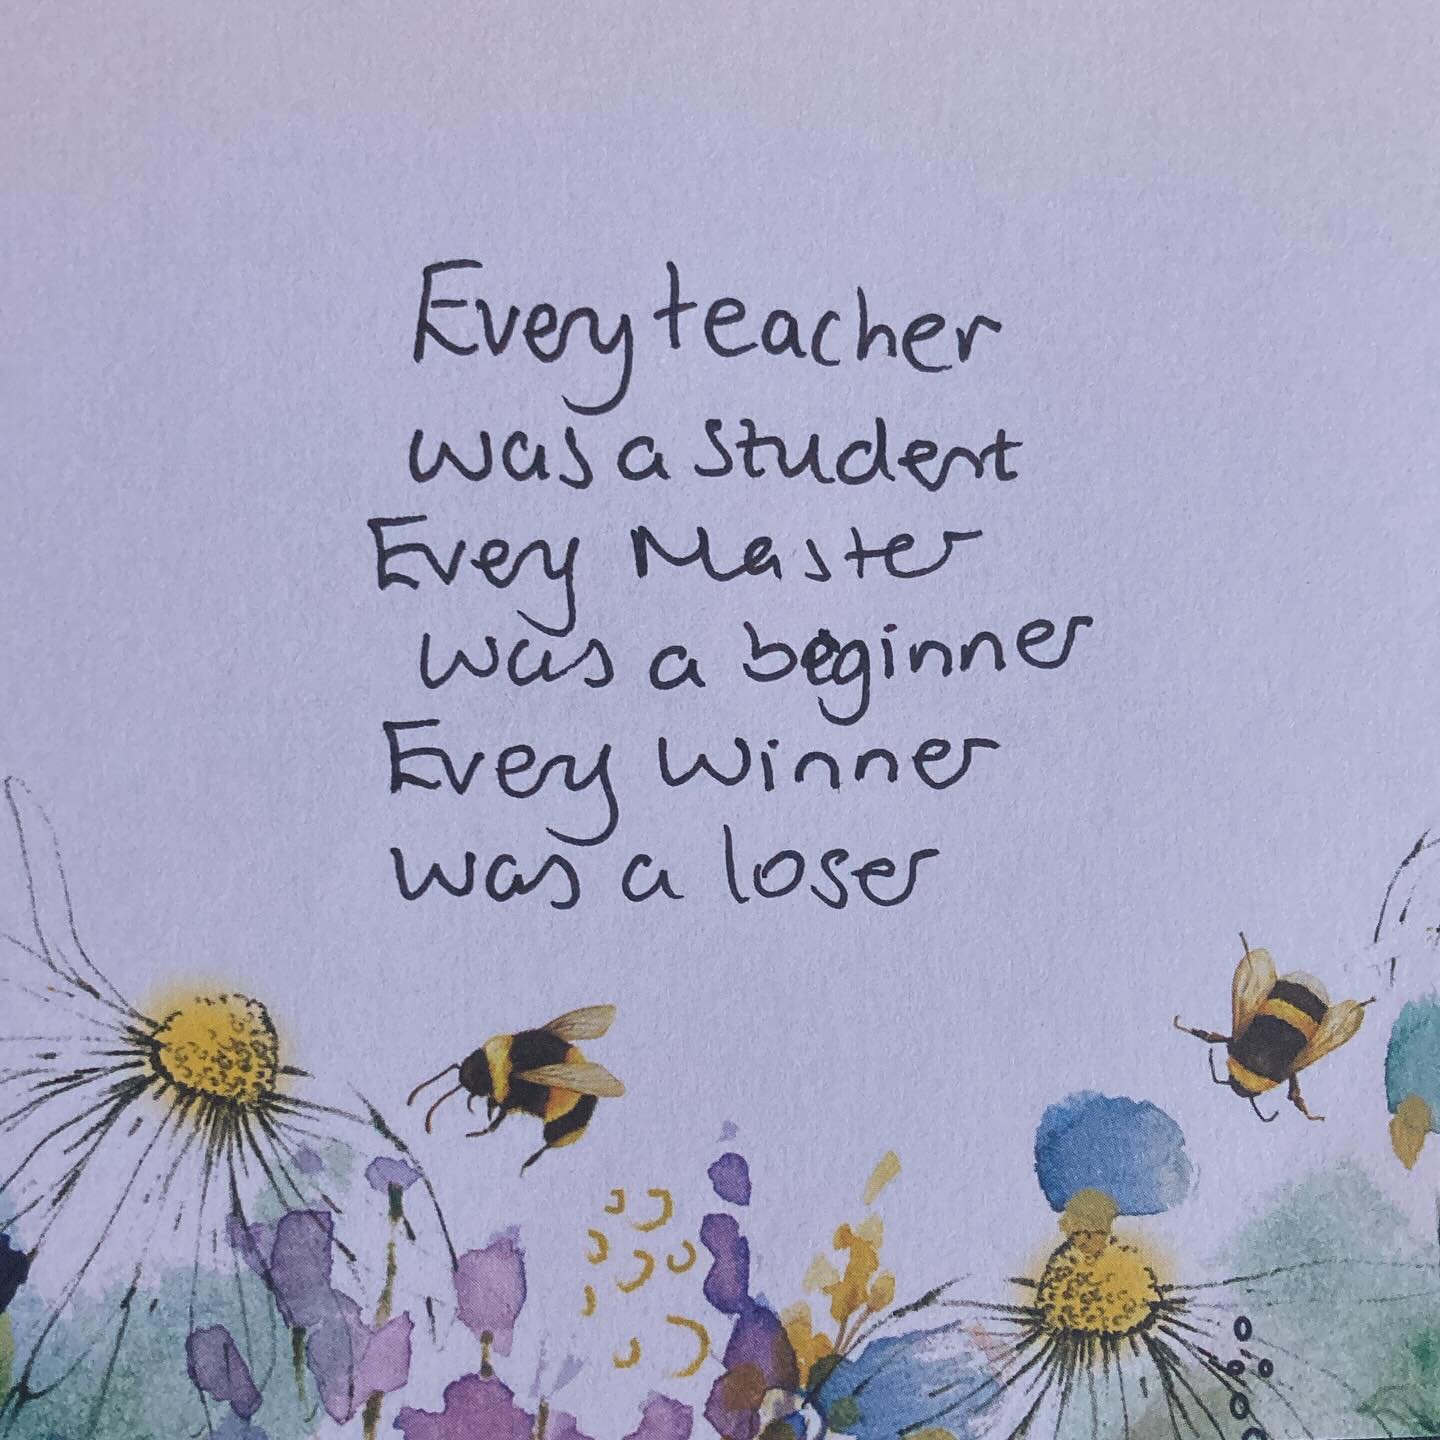 Every teacher
was a student
Every Master
was a beginner
Every Winner
was a loser